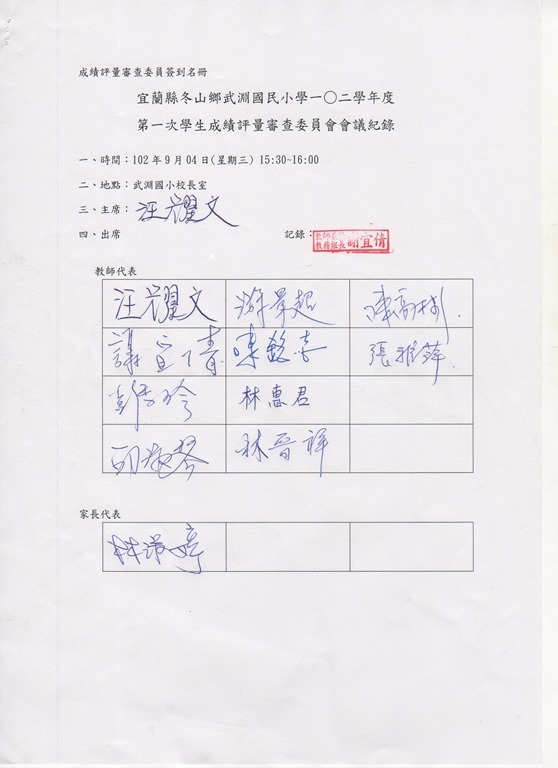 成績評量審查委員簽到名冊
宜蘭縣冬山鄉武淵國民小學一〇二學年度
第一次學生成績評量審查委員會會議紀錄
一、時間：102 年 9 月 04 日(星期三) 15:30~16:00
二、地點：武淵國小校長室
三、主席：汪耀文
四、出席 記錄：教師兼任教務組長 謝宜倩
教師代表
汪耀文 游景超
謝宜倩 張雅萍
林惠君
林晉祥
家長代表
林淑婷